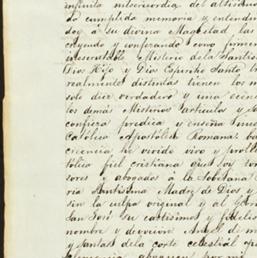 infinita misericordia del altisimo
do cumplida memoria y entendim
doy a su divina Magestad, las
creyendo y confesando como firmem
Misterio de la Santisi
Dios Hijo y Dios Espiritu Santo tr
realmente distintas tienen los m
solo Dios verdadero y una esenci
los demás Misterios articulos y
confiesa predica y enseña nues
Catolica Apostolica Romana ba
creencia he vivido vivo y prot
tolica fiel cristiana que soy tom
sores y abogados á la Soberana
ria Santisima Madre de Dios y
sin la culpa original y al Glorio
San José su castisimo y fidelis
nombre y devocion de m
y santas de la corte celestial